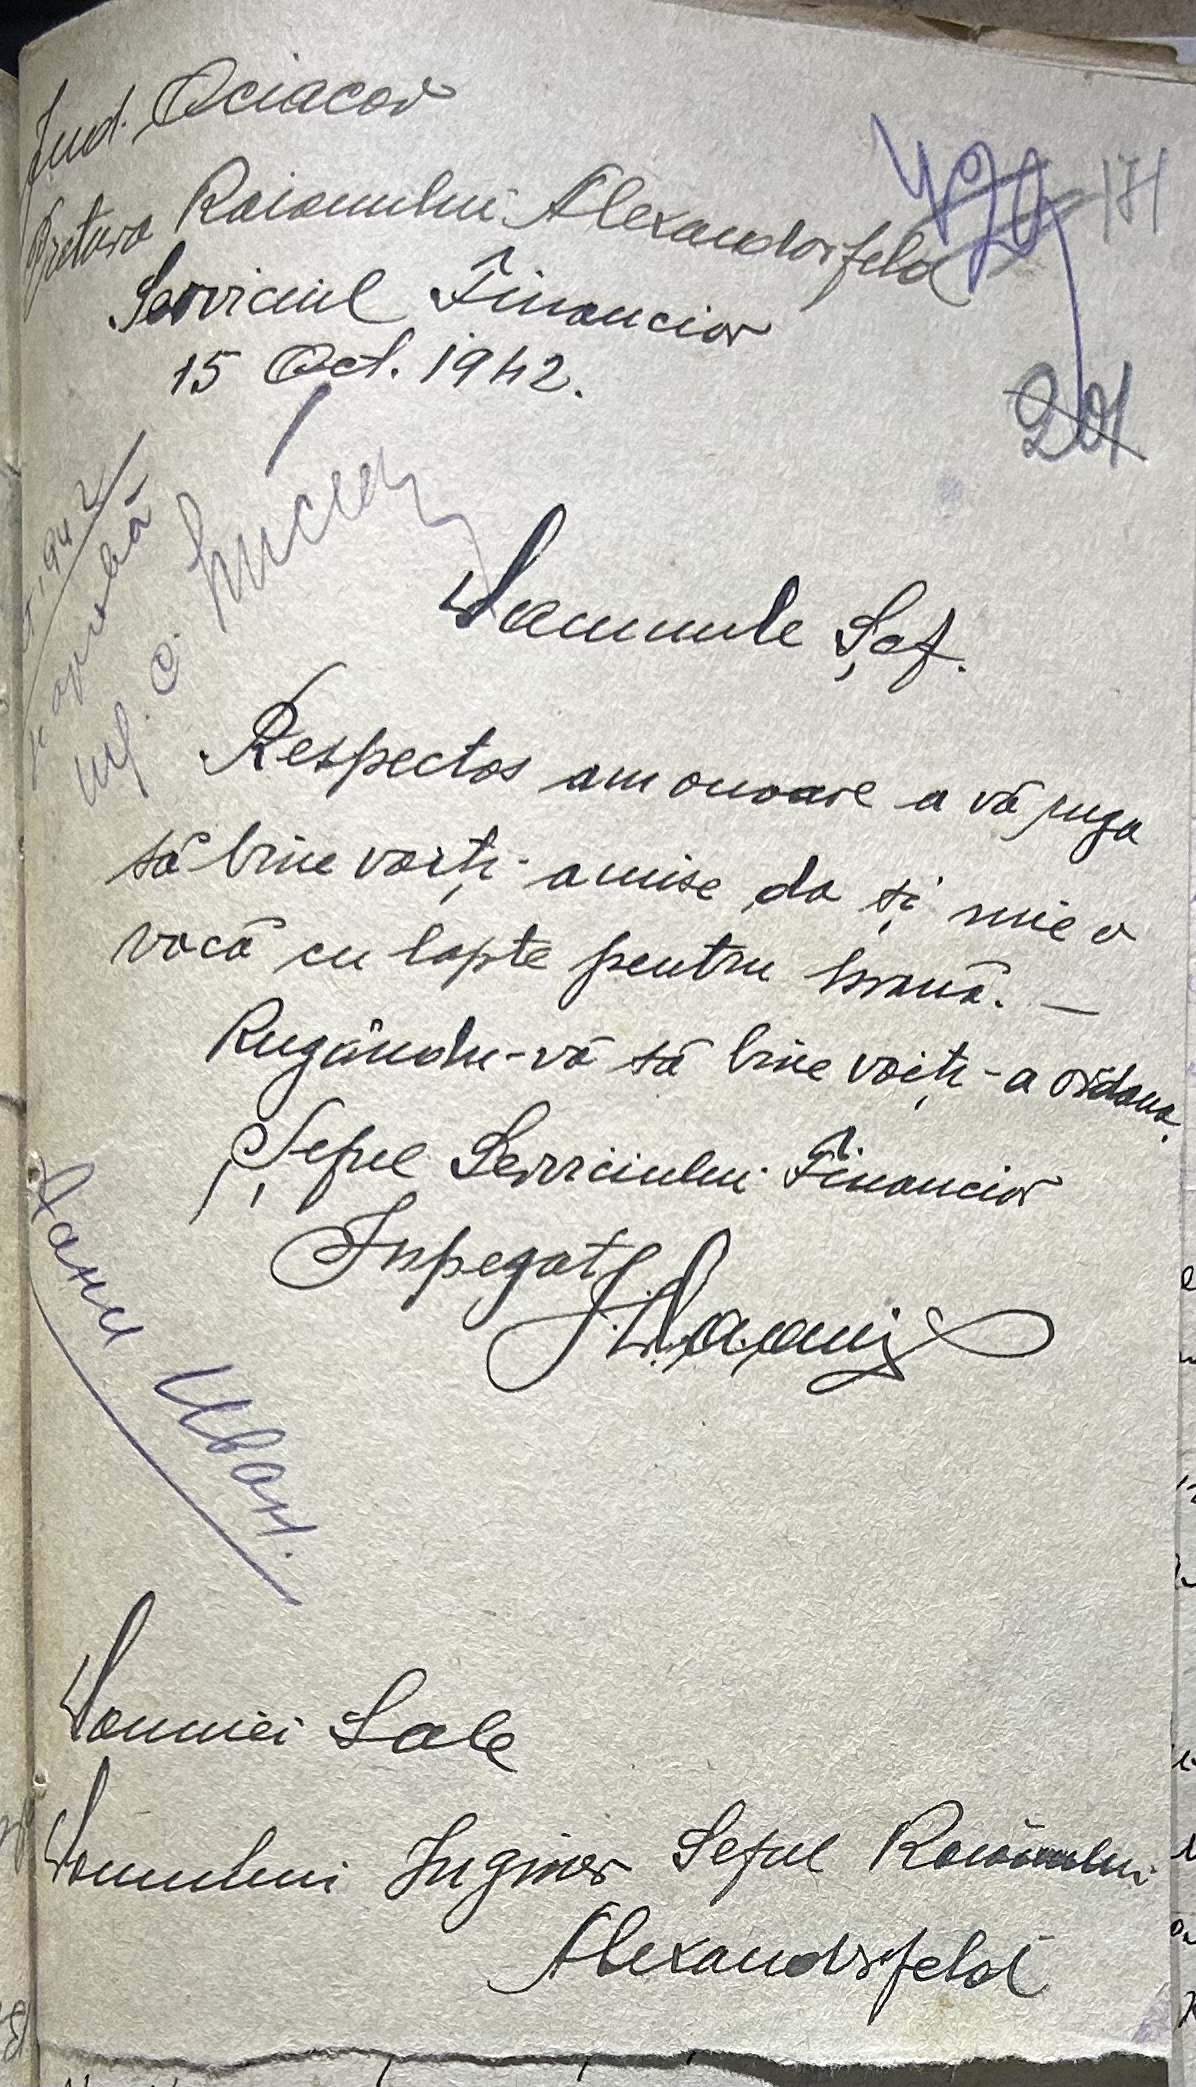 Jud. Ociacov
Pretura Raionului Alexandorfeld
Serviciul Financiar
15 Oct. 1942.
420
171
201
1942
aprobă
Domnule Șef.
Respectos am onoare a vă ruga
să bine voiți a mise da și mie o
vacă cu lapte pentru hrană. —
Rugându-vă să bine voiți-a ordona.
Șeful Serviciului Financiar
Inpegat
Дани Иван.
Domniei Sale
Domnului Inginer Seful Raionului
Alexandrfeld